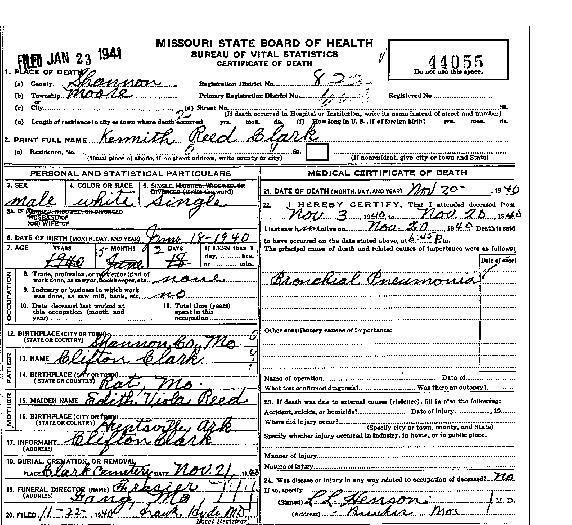 FILED JAN 23 1941
MISSOURI STATE BOARD OF HEALTH
BUREAU OF VITAL STATISTICS
CERTIFICATE OF DEATH
44055
Do not use this space.
1. PLACE OF DEATH
(a) County Shannon Registration District No. 822
(b) Township Moore Primary Registration District No. Registered No.
(c) City (d) Street No. St.
(If death occurred in Hospital or Institution, write its name instead of street and number)
(e) Length of residence in city or town where death occurred yrs. mos. ds. (f) How long in U. S., if of foreign birth? yrs. mos. ds.
2. PRINT FULL NAME Kennith Reed Clark
(a) Residence, No. St.
(Usual place of abode, if no street address, write county or city) (If nonresident, give city or town and State)
PERSONAL AND STATISTICAL PARTICULARS
3. SEX 4. COLOR OR RACE 5. SINGLE, MARRIED, WIDOWED OR
male white Single
6. DATE OF BIRTH (MONTH, DAY, AND YEAR) June 18-1940
7. AGE YEARS MONTHS DAYS If LESS than 1
1940 5 June 2 18 day, hrs.
8. Trade, profession, or particular kind of
work done, as sawyer, bookkeeper, etc. none
9. Industry or business in which work
was done, as saw mill, bank, etc. no
10. Date deceased last worked at
this occupation (month and
year)
11. Total time (years)
spent in this
occupation
OCCUPATION
12. BIRTHPLACE (CITY OR TOWN)
(STATE OR COUNTRY) Shannon Co, Mo
FATHER
13. NAME Clifton Clark
14. BIRTHPLACE (CITY OR TOWN)
(STATE OR COUNTRY) Rat, Mo.
MOTHER
15. MAIDEN NAME Edith Viola Reed
16. BIRTHPLACE (CITY OR TOWN)
(STATE OR COUNTRY) Huntsville, Ark
17. INFORMANT Clifton Clark
(ADDRESS)
18. BURIAL, CREMATION, OR REMOVAL
PLACE Clark Cemetery DATE Nov 21, 1940
19. FUNERAL DIRECTOR (NAME)
(ADDRESS) Mo,
20. FILED 11-22- 1940 Frank Hyde M.D.
Local Registrar
MEDICAL CERTIFICATE OF DEATH
21. DATE OF DEATH (MONTH, DAY, AND YEAR) Nov 20- 1940
22. I HEREBY CERTIFY, That I attended deceased from
Nov 3 1940, to Nov 20 1940
I last saw alive on Nov 20 1940 Death is said
to have occurred on the date stated above, at m.
The principal cause of death and related causes of importance were as follows:
Date of onset
Bronchial Pneumonia
Other contributory causes of importance:
Name of operation Date of
What test confirmed diagnosis? Was there an autopsy?
23. If death was due to external causes (violence), fill in also the following:
Accident, suicide, or homicide? Date of injury 19
Where did injury occur?
(Specify city or town, county, and State)
Specify whether injury occurred in industry, in home, or in public place.
Manner of injury
Nature of injury
24. Was disease or injury in any way related to occupation of deceased? No
If so, specify
(Signed) L L Henson M. D.
(Address) Mo.